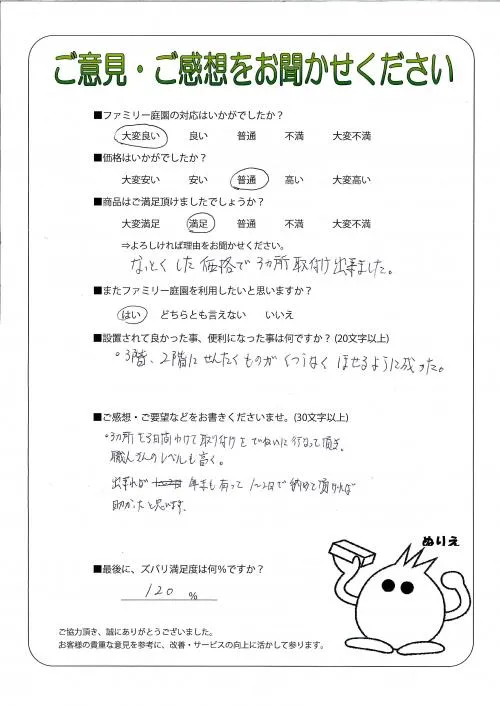 ご意見・ご感想をお聞かせください
■ファミリー庭園の対応はいかがでしたか？
大変良い 良い 普通 不満 大変不満
■価格はいかがでしたか？
大変安い 安い 普通 高い 大変高い
■商品はご満足頂けましたでしょうか？
大変満足 満足 普通 不満 大変不満
⇒よろしければ理由をお聞かせください。
なっとくした価格で3ヵ所取付け出来ました。
■またファミリー庭園を利用したいと思いますか？
はい どちらとも言えない いいえ
■設置されて良かった事、便利になった事は何ですか？(20文字以上)
。3階、2階にせんたくものがくつうなくほせるように成った。
■ご感想・ご要望などをお書きくださいませ。(30文字以上)
。3ヵ所を3日間かけて取り付けをていねいに行なって頂き、
職人さんのレベルも高く。
出来れば 年末も有って 1〜2日で納めて頂ければ
助かったと思います。
ぬりえ
■最後に、ズバリ満足度は何％ですか？
120 ％
ご協力頂き、誠にありがとうございました。
お客様の貴重な意見を参考に、改善・サービスの向上に活かして参ります。